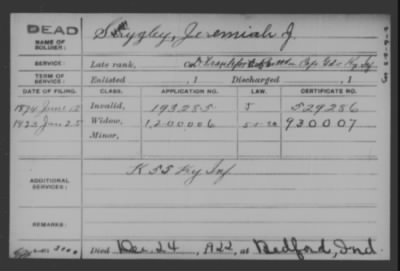 DEAD
NAME OF SOLDIER:
Scrygley, Jeremiah J.
SERVICE:
Late rank, Co. Cap. Gds Ky Inf
TERM OF SERVICE:
Enlisted , 1 Discharged , 1
DATE OF FILING. CLASS. APPLICATION NO. LAW. CERTIFICATE NO.
1874 June 12 Invalid, 193285 J 529286
1923 Jan 25 Widow, 1200006 5-1-20 930007
Minor,
ADDITIONAL SERVICES:
K 55 Ky Inf
REMARKS:
Died Dec. 24, 1922, at Bedford, Ind.